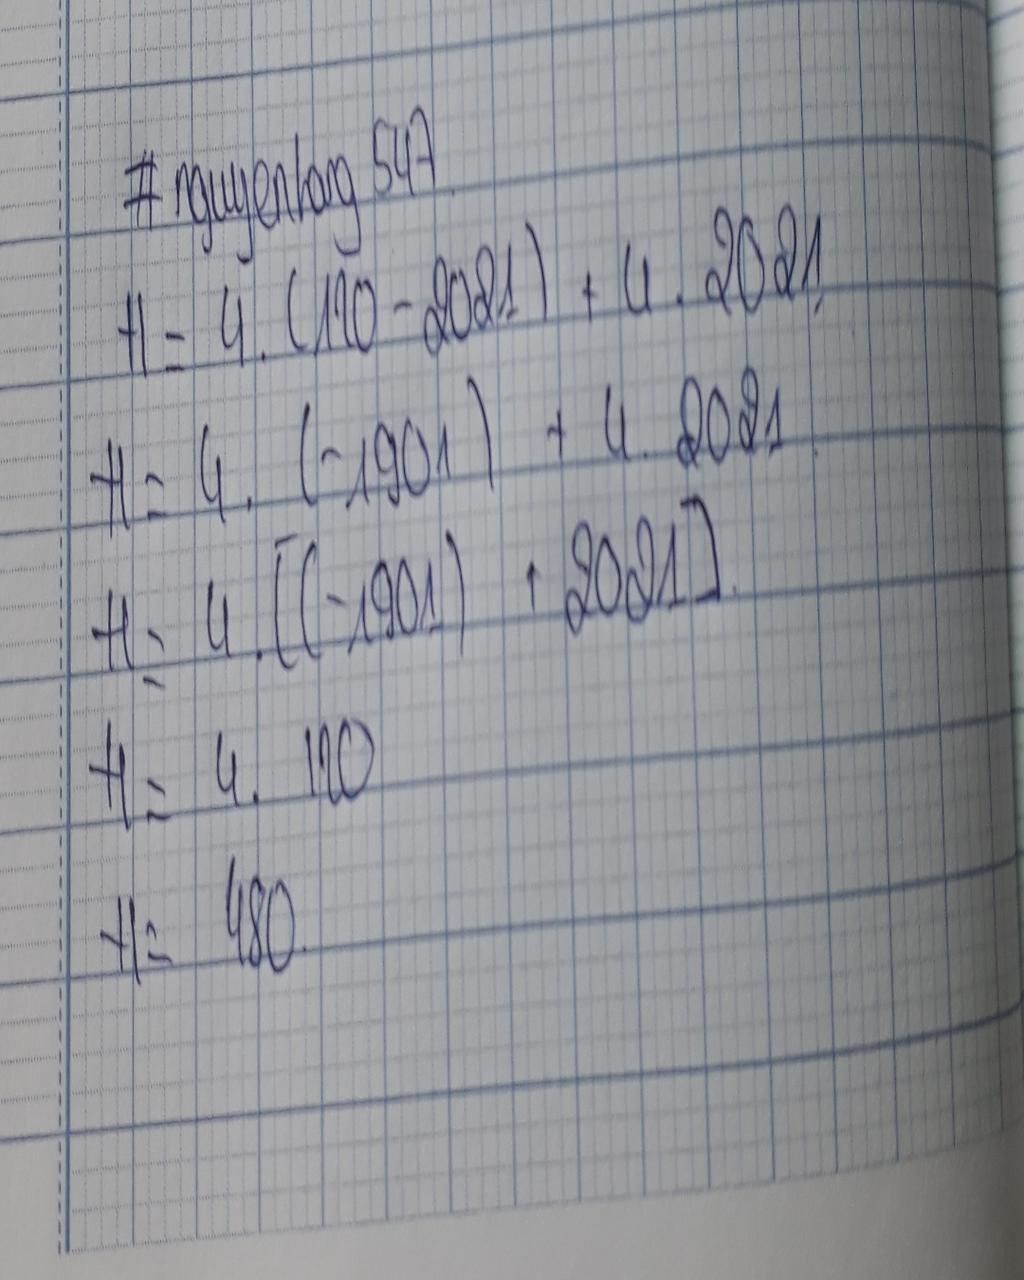 #nguyenlong547
H = 4. (120 - 2021) + 4. 2021
H = 4. (-1901) + 4. 2021
H = 4. [(-1901) + 2021].
H = 4. 120
H = 480.